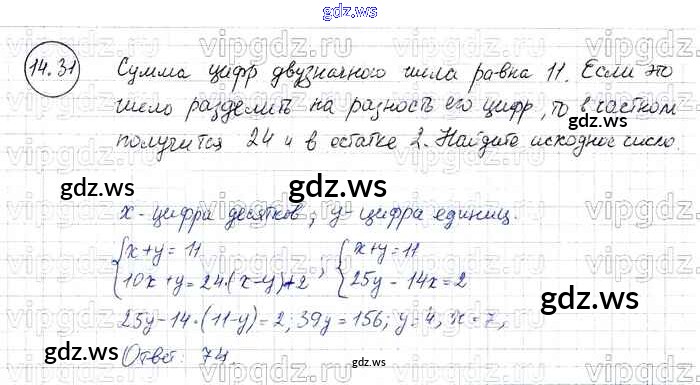 gdz.ws
14.31 Сумма цифр двузначного числа равна 11. Если это
число разделить на разность его цифр, то в частном
получится 24 и в остатке 2. Найдите исходное число.
gdz.ws
x - цифра десятков, y - цифра единиц.
{x+y=11 {x+y=11
{10x+y=24·(x-y)+2 ; {25y-14x=2
gdz.ws
gdz.ws
25y-14·(11-y)=2; 39y=156; y=4, x=7,
Ответ: 74.
gdz.ws
gdz.ws